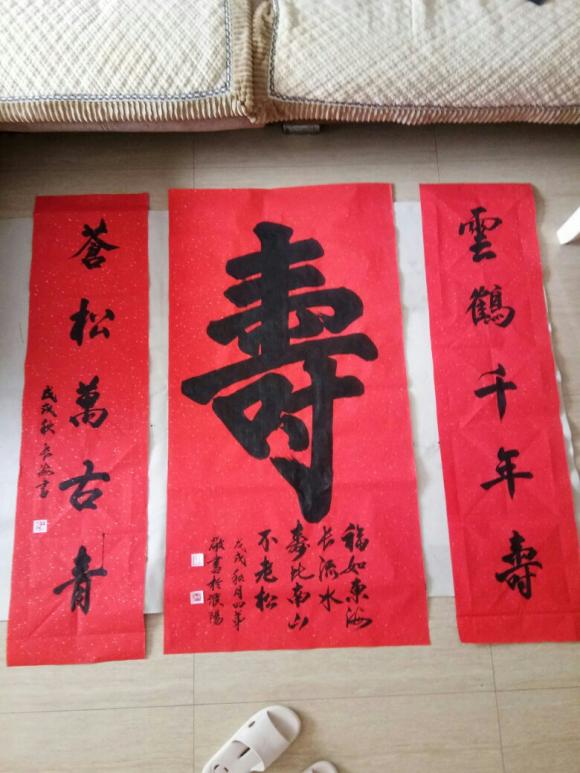 雲鶴千年壽
壽
福如東海
长流水
壽比南山
不老松
戊戌秋月
敬書於濮陽
蒼松萬古青
戊戌秋書